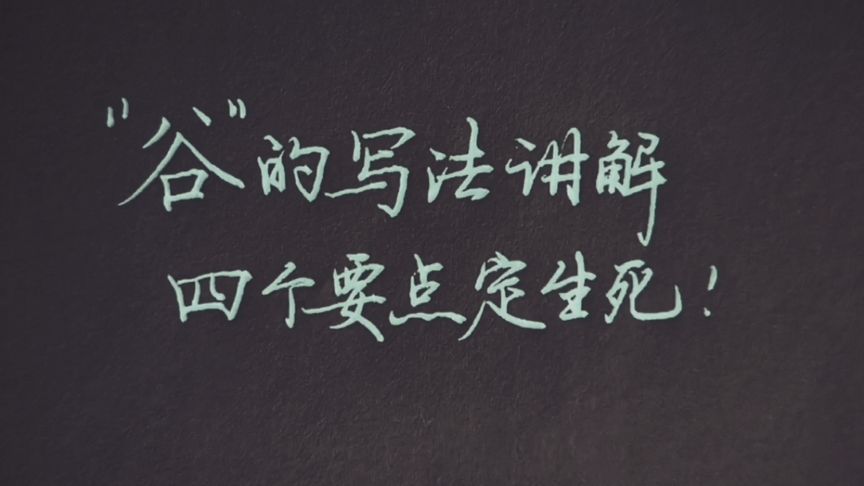 “谷”的写法讲解
四个要点定生死！